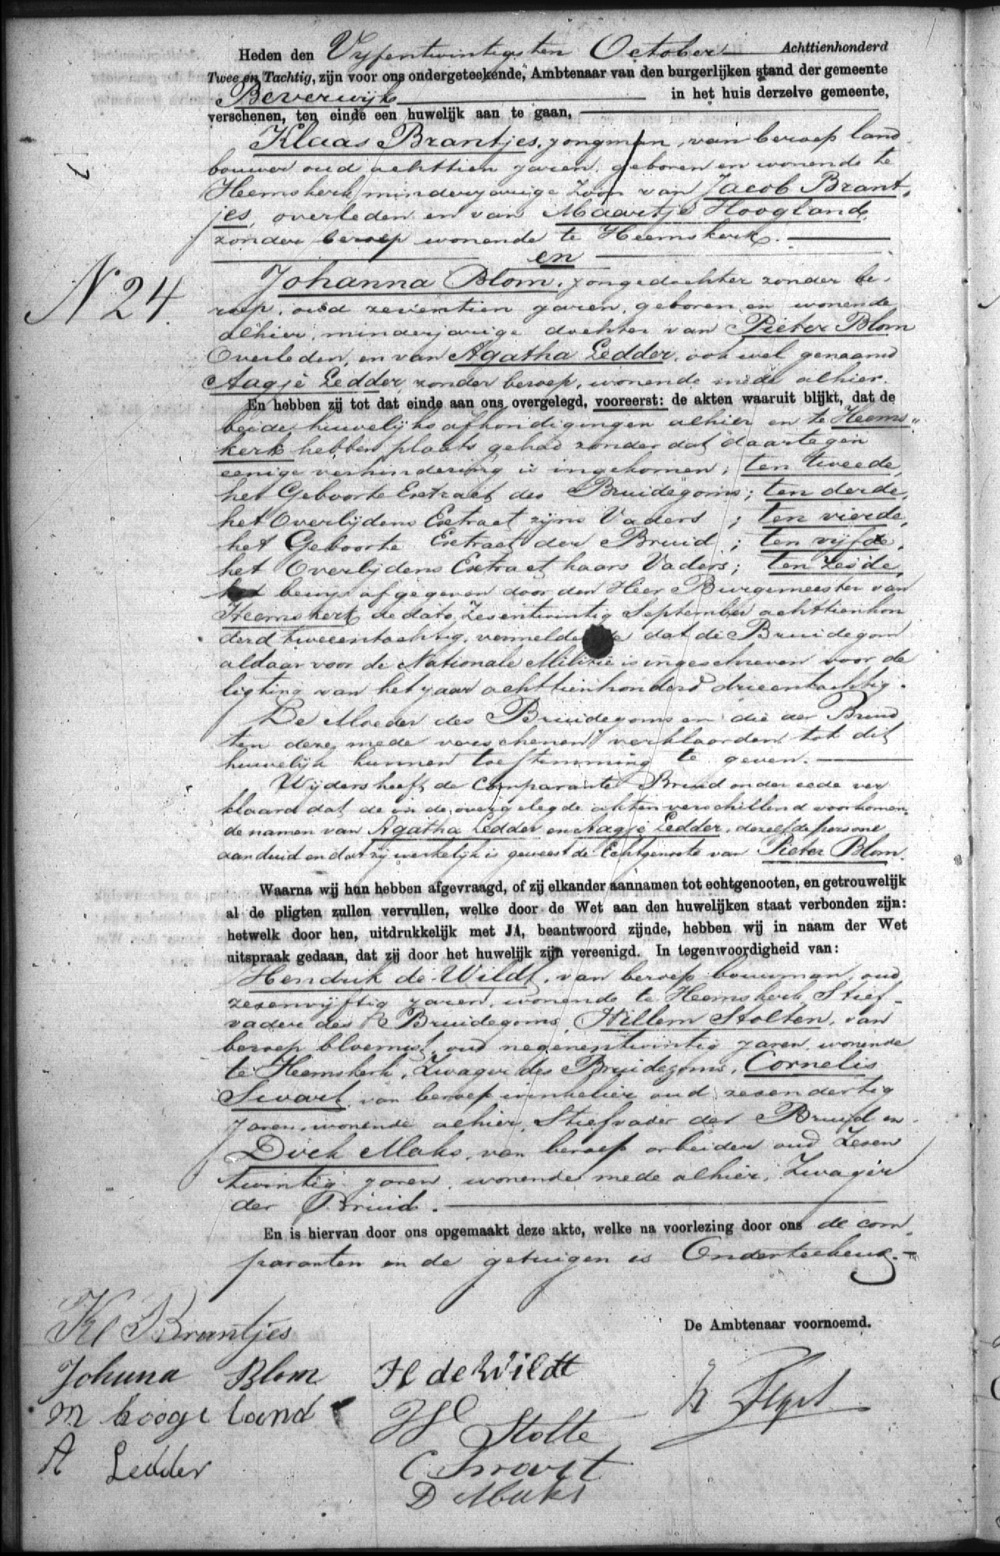 Heden den Vyfentwintigsten October Achttienhonderd
Twee en Tachtig, zijn voor ons ondergeteekende, Ambtenaar van den burgerlijken stand der gemeente
Beverwijk in het huis derzelve gemeente,
verschenen, ten einde een huwelijk aan te gaan,
Klaas Brantjes, jongman, van beroep land
bouwer oud achttien jaren, geboren en wonende te
Heemskerk, minderjarige Zoon van Jacob Brant,
jes, overleden en van Maartje Hoogland,
zonder beroep wonende te Heemskerk.
en
N 24.
Johanna Blom, jongedochter zonder be-
roep, oud zeventien jaren, geboren en wonende
alhier, minderjarige dochter van Pieter Blom
Overleden, en van Agatha Ledder, ook wel genaamd
Aagje Ledder, zonder beroep, wonende mede alhier.
En hebben zij tot dat einde aan ons overgelegd, vooreerst: de akten waaruit blijkt, dat de
beide huwelijks afkondigingen alhier en te Heems„
kerk hebben plaats gehad zonder dat daartegen
eenige verhindering is ingekomen; ten tweede,
het Geboorte Extract des Bruidegoms; ten derde,
het Overlijdens Extract zijns Vaders; ten vierde,
het Geboorte Extract der Bruid; ten vijfde,
het Overlijdens Extract haars Vaders; ten Zesde,
het bewijs afgegeven door den Heer Burgemeester van
Heemskerk de dato Zesentwintig September achttienhon
derd tweeentachtig, vermeldende dat de Bruidegom
aldaar voor de Nationale Militie is ingeschreven voor de
ligting van het jaar achttienhonderd drieentachtig.
De Moeder des Bruidegoms en die der Bruid
ten deze mede verschenen verklaarden tot dit
huwelijk hunnen toestemming te geven.
Wijders heeft de Comparante Bruid onder eede ver
klaard dat de in de overgelegde akten verschillend voorkomen,
de namen van Agatha Ledder en Aagje Ledder, dezelfde persoon
aanduid en dat zij werkelijk is geweest de Echtgenoote van Pieter Blom.
Waarna wij hun hebben afgevraagd, of zij elkander aannamen tot echtgenooten, en getrouwelijk
al de pligten zullen vervullen, welke door de Wet aan den huwelijken staat verbonden zijn:
hetwelk door hen, uitdrukkelijk met JA, beantwoord zijnde, hebben wij in naam der Wet
uitspraak gedaan, dat zij door het huwelijk zijn vereenigd. In tegenwoordigheid van:
Hendrik de Wildt, van beroep bouwman, oud
zesenvijftig jaren, wonende te Heemskerk, Stief-
vader des Bruidegoms, Willem Stolten, van
beroep bloemist, oud negenentwintig jaren, wonende
te Heemskerk, Zwager des Bruidegoms, Cornelis
Swart, van beroep winkelier oud zesendertig
jaren, wonende alhier, Stiefvader der Bruid en
Dirk Maks, van beroep arbeider oud Zesen
twintig jaren, wonende mede alhier, Zwager
der Bruid.
En is hiervan door ons opgemaakt deze akte, welke na voorlezing door ons de com
paranten en de getuigen is Onderteekend.
De Ambtenaar voornoemd.
Kl Brantjes
Johuna Blom
M hooge land
A Ledder
H de Wildt
W Stolte
C Swart
D Maks